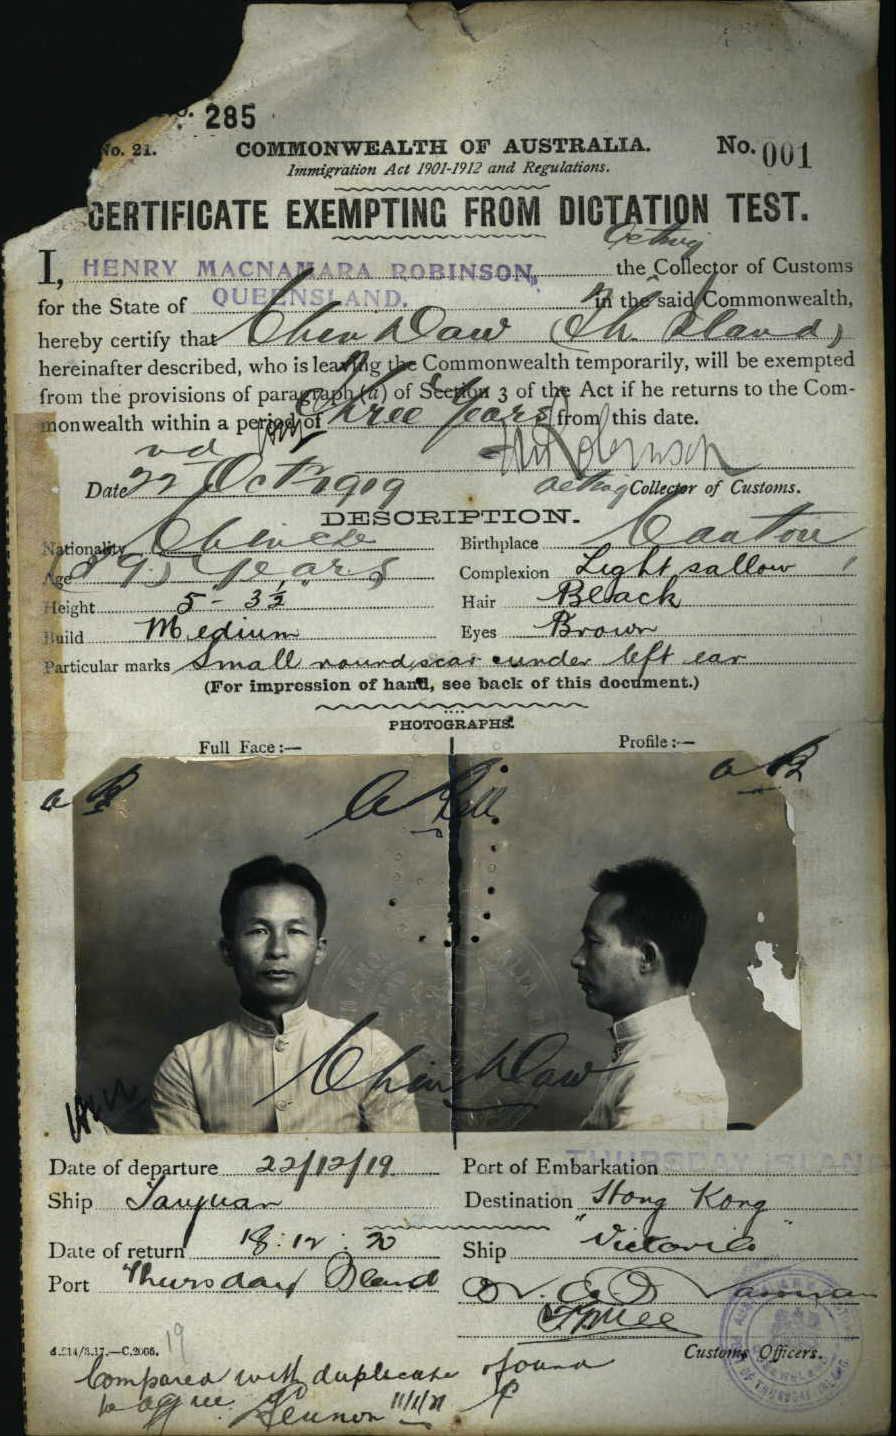 No. 285
No. 21. COMMONWEALTH OF AUSTRALIA. No. 001
Immigration Act 1901-1912 and Regulations.
CERTIFICATE EXEMPTING FROM DICTATION TEST.
Acting
I, HENRY MACNAMARA ROBINSON, the Collector of Customs
for the State of QUEENSLAND. in the said Commonwealth,
hereby certify that Chin Daw (Th. Island)
hereinafter described, who is leaving the Commonwealth temporarily, will be exempted
from the provisions of paragraph (a) of Section 3 of the Act if he returns to the Com-
monwealth within a period of Three Years from this date.
HM Robinson
Date 22nd Octr 1919 acting Collector of Customs.
DESCRIPTION.
Nationality Chinese Birthplace Canton
Age (39) Years Complexion Light sallow
Height 5 - 3½ Hair Black
Build Medium Eyes Brown
Particular marks Small round scar under left ear
(For impression of hand, see back of this document.)
PHOTOGRAPHS.
Full Face:— Profile:—
Chin Daw
Date of departure 22/12/19 Port of Embarkation THURSDAY ISLAND
Ship Taiyuan Destination Hong Kong
Date of return 18:12:20 Ship "Victoria"
Port Thursday Island
Customs Officers.
19
Compared with duplicate & found
to agree. Lennon 11/1/21